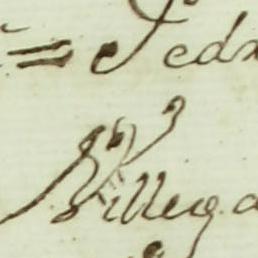 = Pedr
Villega